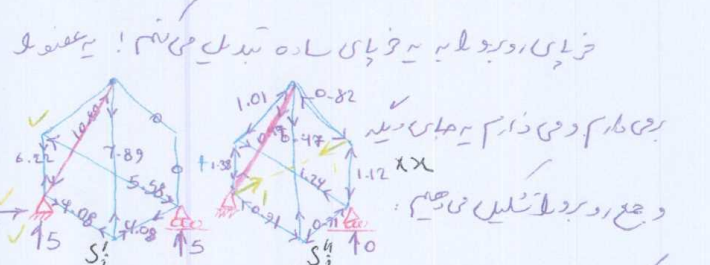 خرپای روبرو را به یه خرپای ساده تبدیل می‌کنیم! یه عضو را
برمی‌دارم و می‌ذارم یه جای دیگه
و جمع روبرو را تشکیل می‌دهیم:
6.22
7.89
5.58
4.08
4.08
5
5
S'i
1.01
0.82
0.47
+1.38
1.24
1.12 xx
0.91
0.71
0
S"i